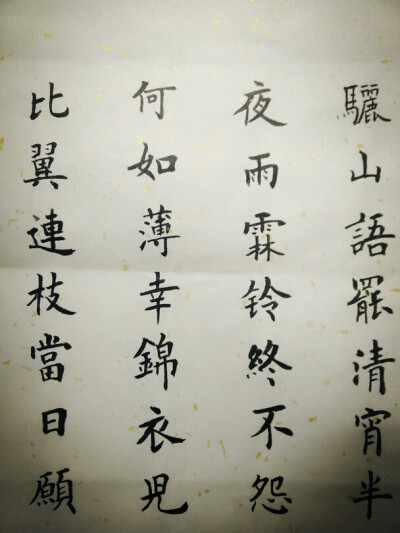 驪山語罷清宵半
夜雨霖铃終不怨
何如薄幸錦衣児
比翼連枝當日願